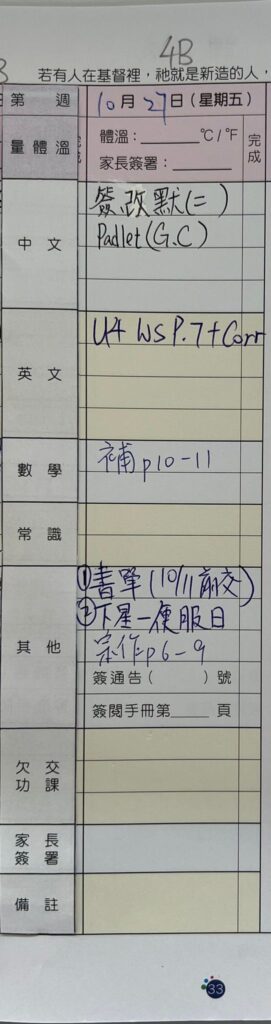 4B
若有人在基督裡，祂就是新造的人，
第 週 10月27日(星期五)
量體溫 完成 體溫：________ °C/°F 完成
家長簽署：________
中文 簽改默(二)
Padlet(G.C)
英文 U4 WS P.7+Corr
數學 補p10-11
常識
其他 ①書單(10/11前交)
②下星一便服日
宗作p6-9
簽通告( )號
簽閱手冊第____頁
欠交功課
家長簽署
備註
33